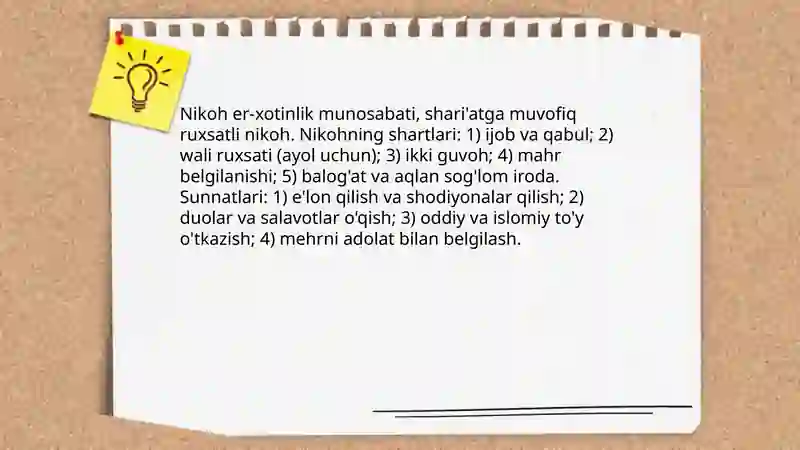 Nikoh er-xotinlik munosabati, shari'atga muvofiq
ruxsatli nikoh. Nikohning shartlari: 1) ijob va qabul; 2)
wali ruxsati (ayol uchun); 3) ikki guvoh; 4) mahr
belgilanishi; 5) balog'at va aqlan sog'lom iroda.
Sunnatlari: 1) e'lon qilish va shodiyonalar qilish; 2)
duolar va salavotlar o'qish; 3) oddiy va islomiy to'y
o'tkazish; 4) mehrni adolat bilan belgilash.